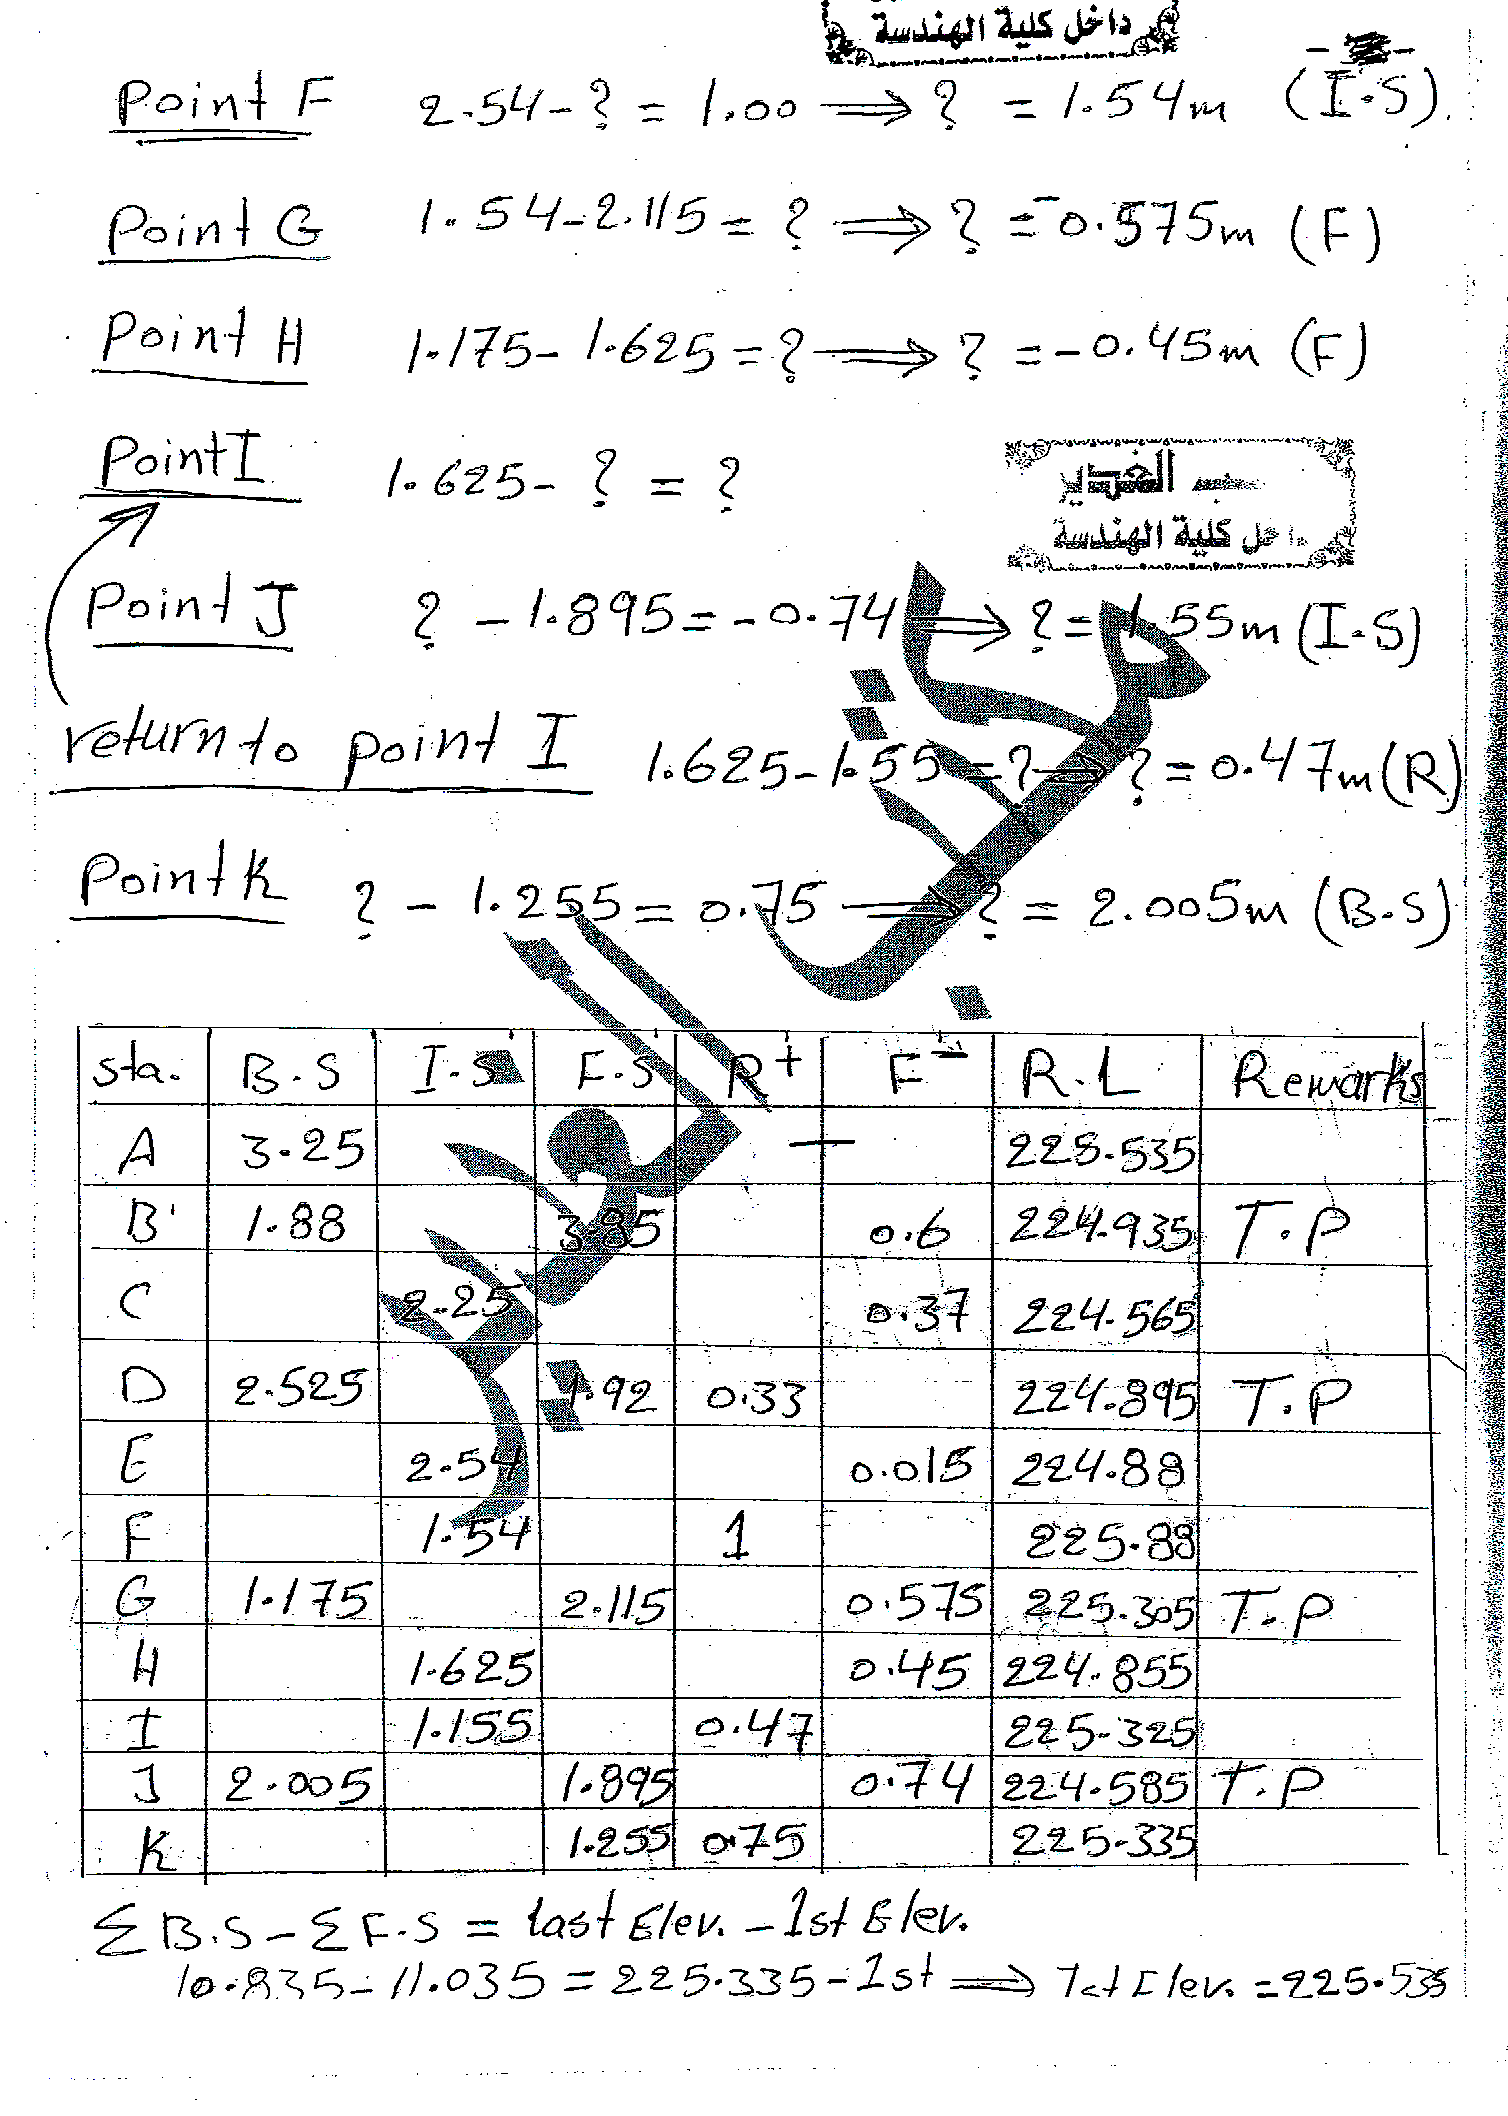 داخل كلية الهندسة
Point F 2.54-? = 1.00 ⟹ ? = 1.54m (I.S).
Point G 1.54-2.115 = ? ⟹ ? = -0.575m (F)
Point H 1.175-1.625 = ? ⟹ ? = -0.45m (F)
Point I 1.625- ? = ?
الغدير
داخل كلية الهندسة
Point J ? - 1.895 = -0.74 ⟹ ? = 1.55m (I.S)
return to point I 1.625-1.55 = ? ⟹ ? = 0.47m (R)
Point K ? - 1.255 = 0.75 ⟹ ? = 2.005m (B.S)
Sta. B.S I.S F.S R+ F- R.L Remarks
A 3.25 — 225.535
B 1.88 3.85 0.6 224.935 T.P
C 2.25 0.37 224.565
D 2.525 1.92 0.33 224.895 T.P
E 2.54 0.015 224.88
F 1.54 1 225.88
G 1.175 2.115 0.575 225.305 T.P
H 1.625 0.45 224.855
I 1.155 0.47 225.325
J 2.005 1.895 0.74 224.585 T.P
K 1.255 0.75 225.335
Σ B.S - Σ F.S = last Elev. - 1st Elev.
10.835 - 11.035 = 225.335 - 1st ⟹ 1st Elev. = 225.535